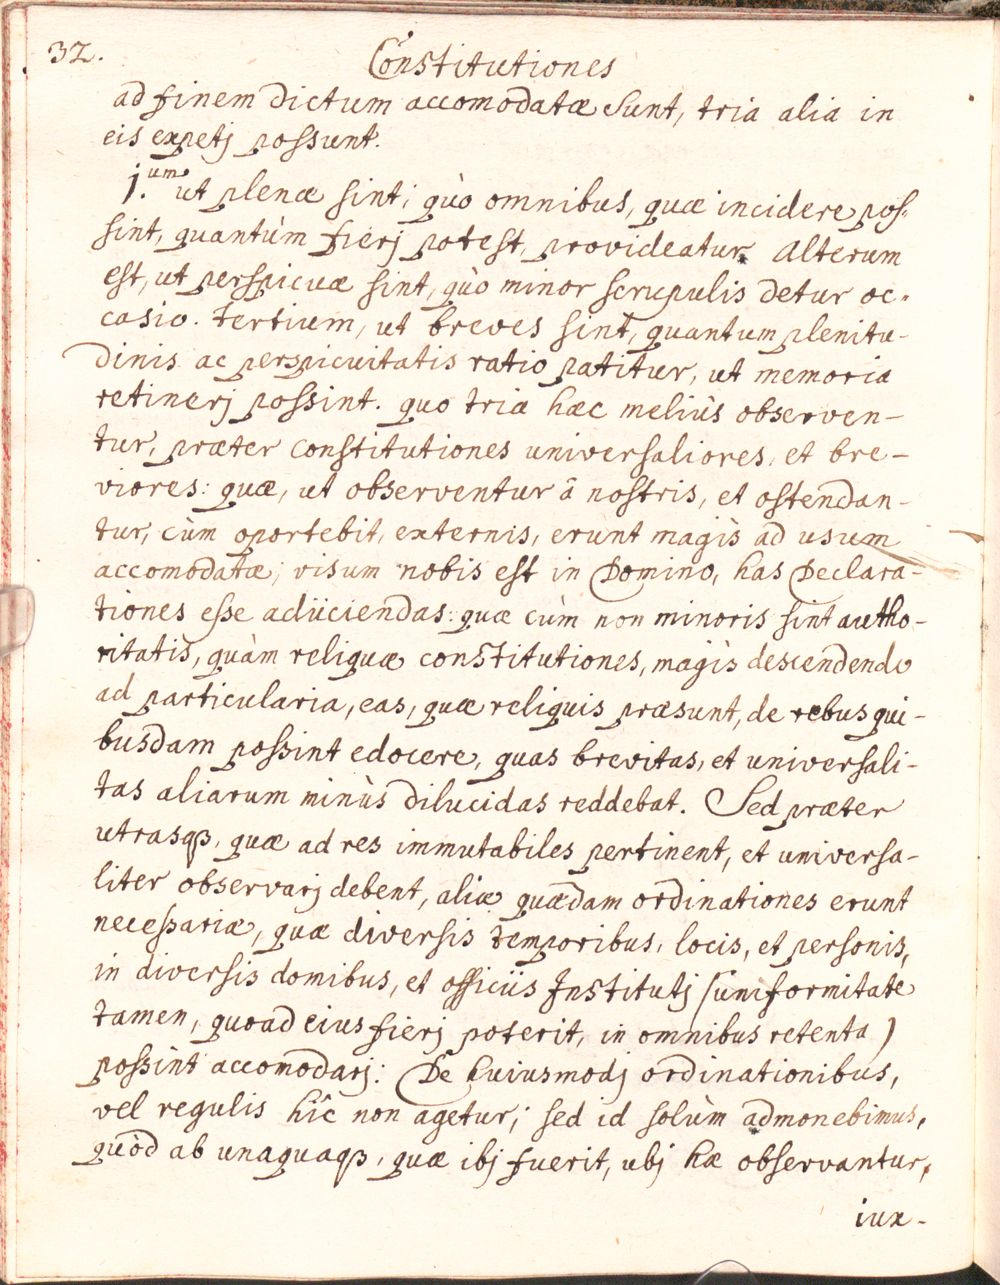 32.
Constitutiones
ad finem dictum accomodatæ sunt, tria alia in
eis expetj possunt.
j.um ut plenæ sint; quò omnibus, quæ incidere pos-
sint, quantùm fierj potest, provideatur. Alterum
est, ut perspicuæ sint, quò minor scrupulis detur oc-
casio. tertium, ut breves sint, quantum plenitu-
dinis ac perspicuitatis ratio patitur, ut memoria
retinerj possint. quo tria hæc meliùs observen-
tur, præter constitutiones universaliores, et bre-
viores: quæ, ut observentur â nostris, et ostendan-
tur, cùm oportebit, externis, erunt magìs ad usum
accomodatæ; visum nobis est in Domino, has Declara-
tiones esse adiiciendas: quæ cùm non minoris sint autho-
ritatis, quàm reliquæ constitutiones, magìs descendendo
ad particularia, eas, quæ reliquis præsunt, de rebus qui-
busdam possint edocere, quas brevitas, et universali-
tas aliarum minùs dilucidas reddebat. Sed præter
utrasqꝫ, quæ ad res immutabiles pertinent, et universa-
liter observarj debent, aliæ quædam ordinationes erunt
necessariæ, quæ diversis temporibus, locis, et personis,
in diversis domibus, et officiis Institutj (uniformitate
tamen, quoad eius fierj poterit, in omnibus retenta)
possint accomodarj: De huiusmodj ordinationibus,
vel regulis hîc non agetur; sed id solùm admonebimus,
quòd ab unaquaqꝫ, quæ ibj fuerit, ubj hæ observantur,
iux-